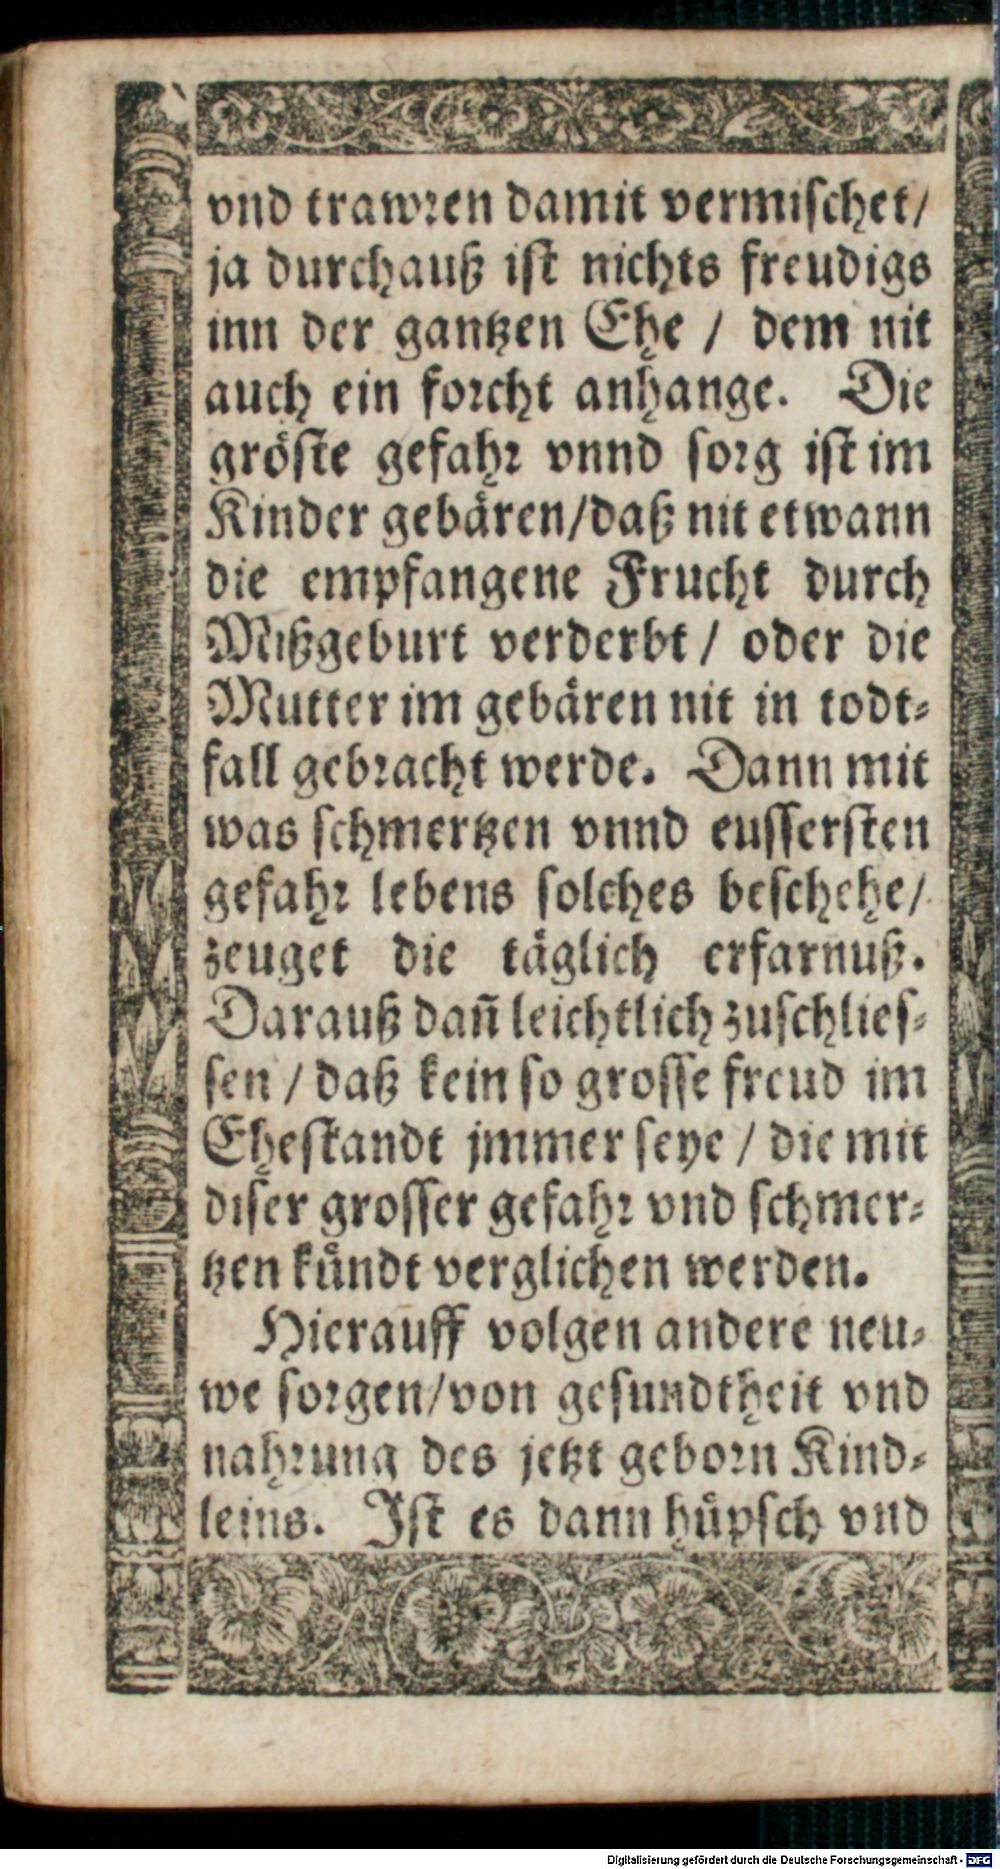 vnd trawren damit vermischet/
ja durchauß ist nichts freudigs
inn der gantzen Ehe / dem nit
auch ein forcht anhange. Die
gröste gefahr vnnd sorg ist im
Kinder gebären/daß nit etwann
die empfangene Frucht durch
Mißgeburt verderbt / oder die
Mutter im gebären nit in todt-
fall gebracht werde. Dann mit
was schmertzen vnnd eussersten
gefahr lebens solches beschehe/
zeuget die täglich erfarnuß.
Darauß dañ leichtlich zuschlies-
sen / daß kein so grosse freud im
Ehestandt jmmer seye / die mit
diser grosser gefahr vnd schmer-
tzen kündt verglichen werden.
Hierauff volgen andere neu-
we sorgen/von gesundtheit vnd
nahrung des jetzt geborn Kind-
leins. Ist es dann hüpsch vnd
Digitalisierung gefördert durch die Deutsche Forschungsgemeinschaft - DFG